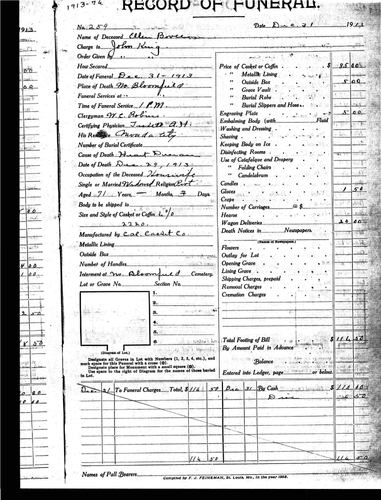 1913-14
RECORD OF FUNERAL.
No 259 Date Dec. 31 1913
Name of Deceased Ellen
Charge to John King
Order Given by " "
How Secured
Date of Funeral Dec. 31 - 1913
Place of Death N. Bloomfield
Funeral Services at
Time of Funeral Service 1 P.M.
Clergyman W.C. Robins
Certifying Physician A.H.
His Residence Nevada City
Number of Burial Certificate
Cause of Death Heart Disease
Date of Death Dec. 29, 1913
Occupation of the Deceased Housewife
Single or Married Widowed Religion Prot
Aged 71 Years — Months 7 Days
Body to be shipped to
Size and Style of Casket or Coffin 6/0
2220.
Manufactured by Cal. Casket Co
Metallic Lining
Outside Box
Number of Handles
Interment at N. Bloomfield Cemetery.
Lot or Grave No. Section No.
(Diagram of Lot.)
Designate all Graves in Lot with Numbers (1, 2, 3, 4, etc.), and
mark space for this Funeral with a cross
Designate place for Monument with a small square
Use space to the right of Diagram for the names of those buried
in Lot.
Price of Casket or Coffin $ 85 00
" Metallic Lining
" Outside Box 5 00
" Grave Vault
" Burial Robe
" Burial Slippers and Hose
Engraving Plate 5 00
Embalming Body (with Fluid
Washing and Dressing
Shaving
Keeping Body on Ice
Disinfecting Rooms
Use of Catafalque and Drapery
" Folding Chairs
" Candelabrum
Candles
Gloves 1 50
Crape
Number of Carriages @ $
Hearse
Wagon Deliveries 20 00
Death Notices in Newspapers.
(Names of Newspapers.)
Flowers
Outlay for Lot
Opening Grave
Lining Grave
Shipping Charges, prepaid
Removal Charges
Cremation Charges
Total Footing of Bill $ 116 50
By Amount Paid in Advance
Balance
Entered into Ledger, page or below.
Dec 31 To Funeral Charges Total, $ 116 50 Dec 31 By Cash
116 50 116 50
Names of Pall Bearers
Compiled by F. J. FEINEMAN, St. Louis, Mo., in the year 1898.